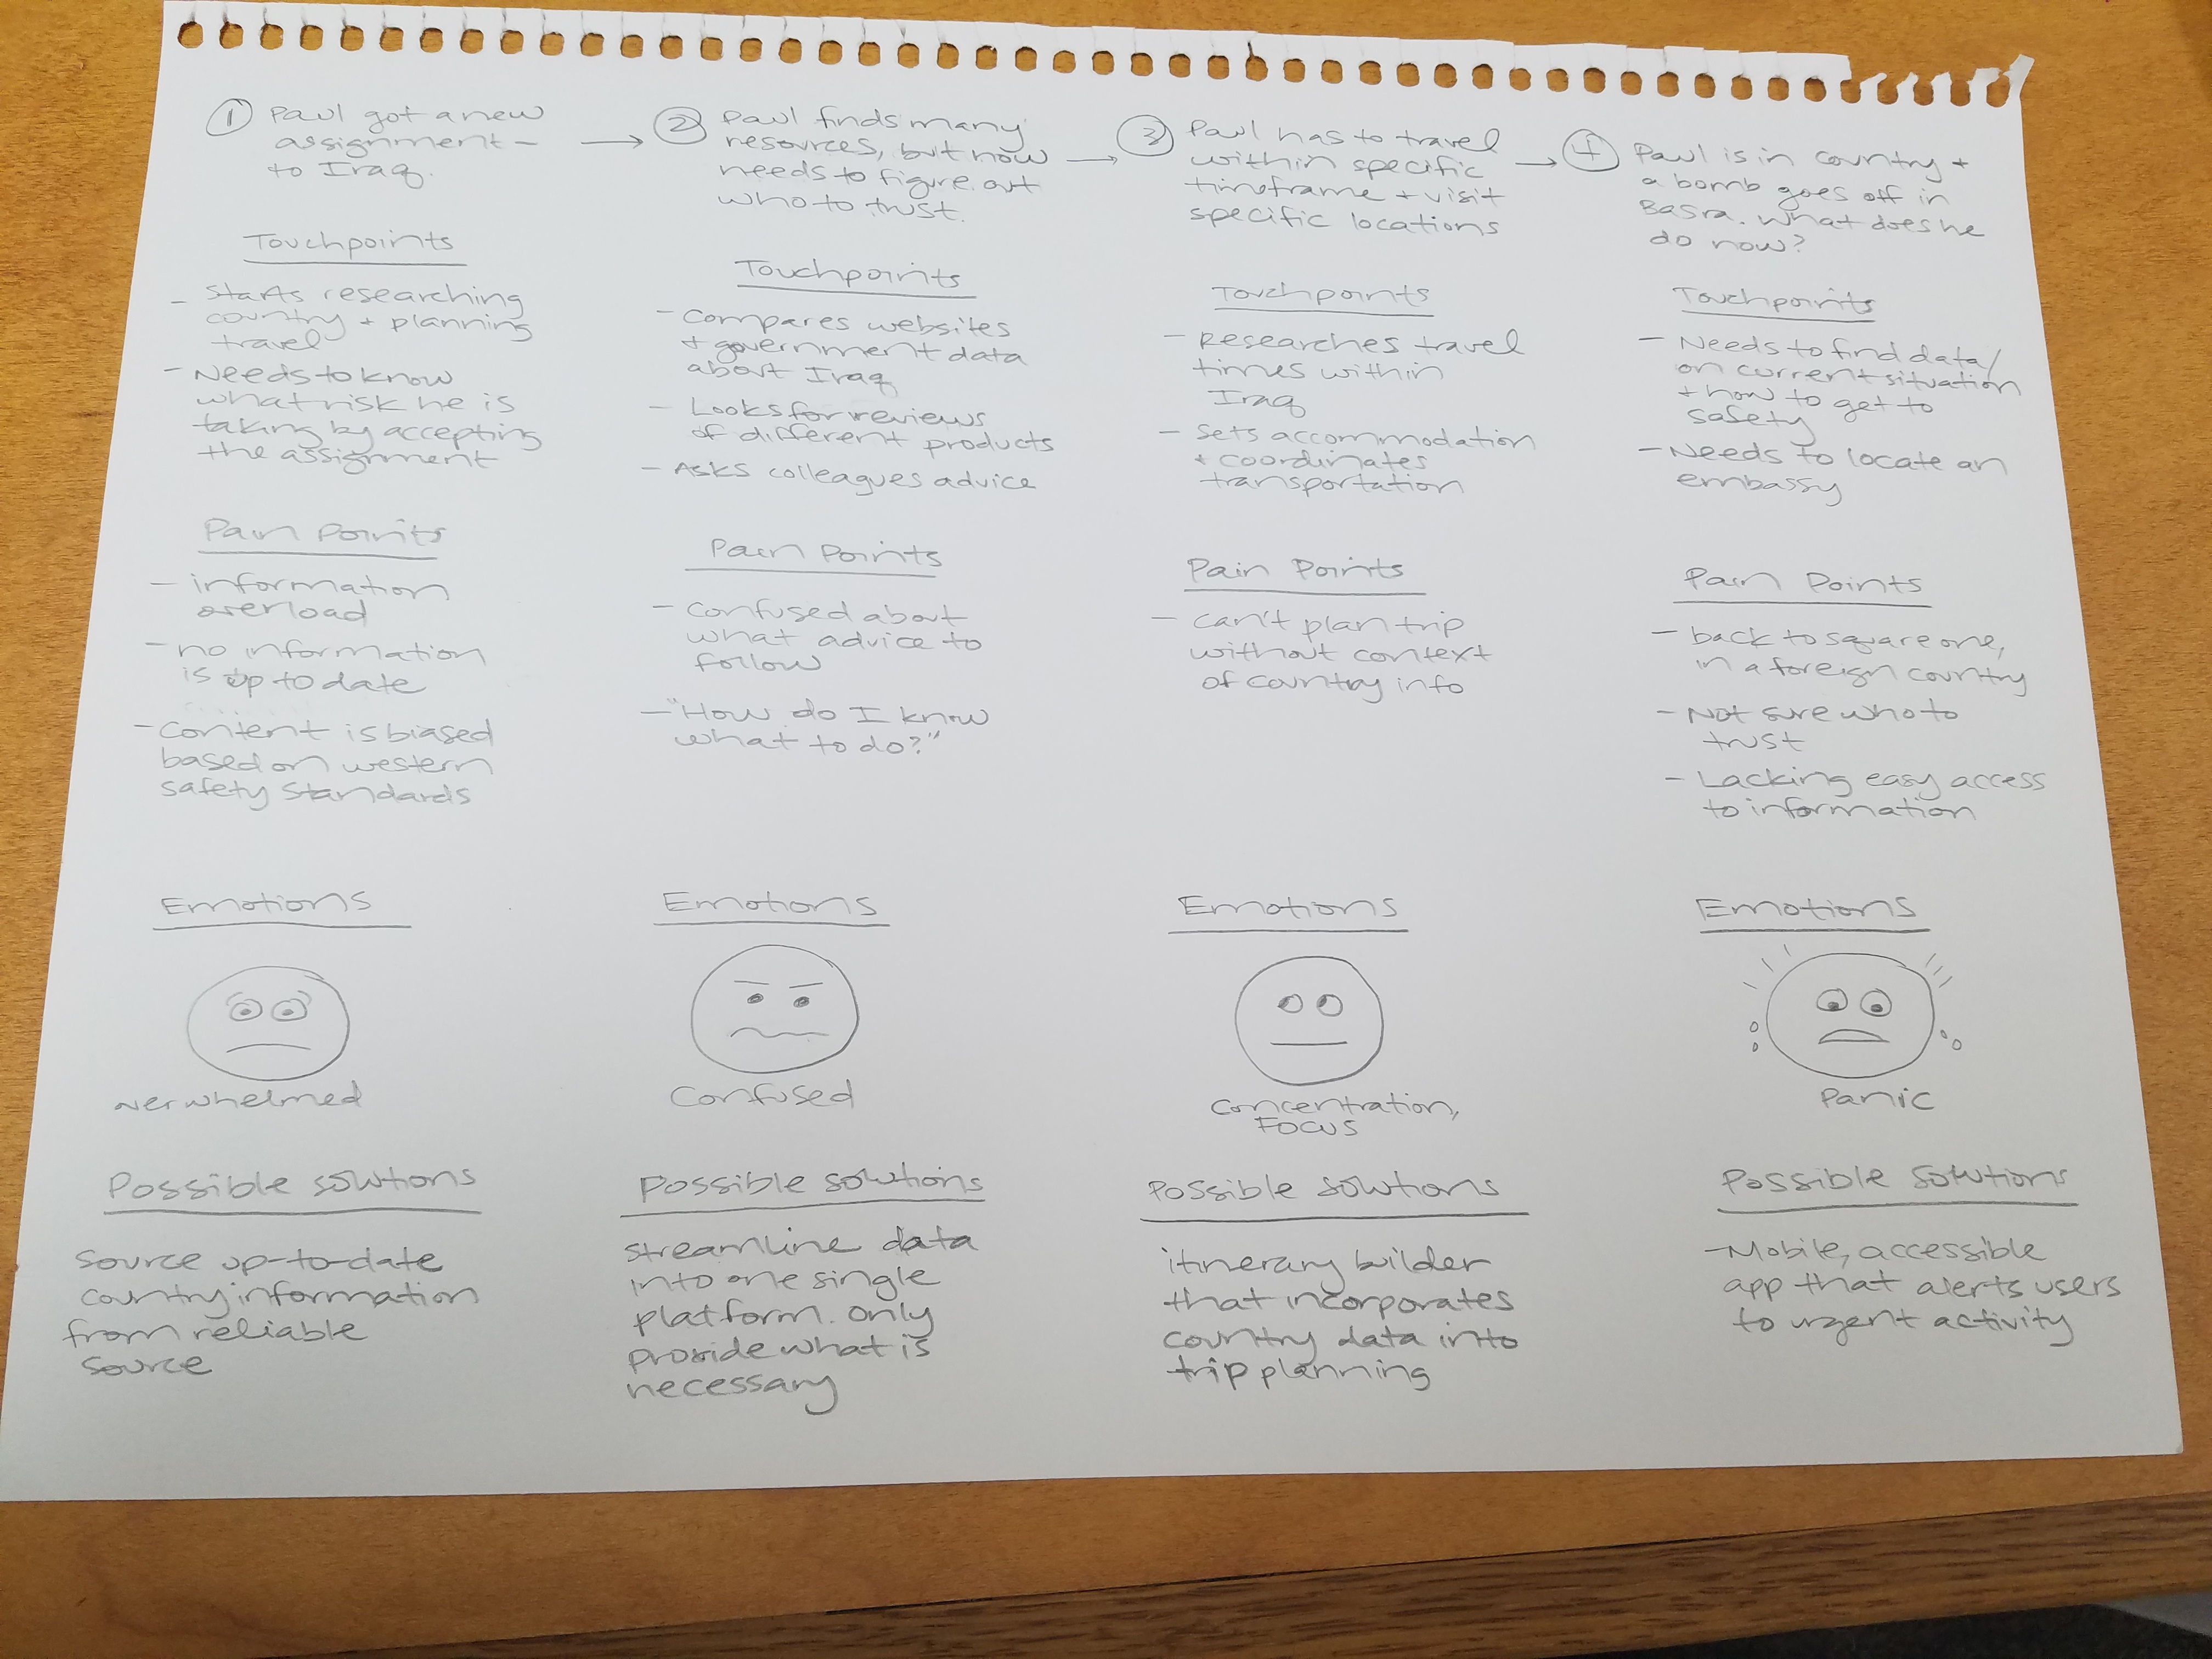 ① Paul got a new
assignment -
to Iraq.
Touchpoints
- Starts researching
country + planning
travel
- Needs to know
what risk he is
taking by accepting
the assignment
Pain Points
- information
overload
- no information
is up to date
- Content is biased
based on western
safety standards
Emotions
nerwhelmed
Possible solutions
source up-to-date
country information
from reliable
source
→ ② Paul finds many
resources, but now
needs to figure out
who to trust.
Touchpoints
- Compares websites
+ government data
about Iraq
- Looks for reviews
of different products
- Asks colleagues advice
Pain Points
- Confused about
what advice to
follow
- "How do I know
what to do?"
Emotions
Confused
Possible solutions
streamline data
into one single
platform. only
provide what is
necessary
→ ③ Paul has to travel
within specific
timeframe + visit
specific locations
Touchpoints
- Researches travel
times within
Iraq
- Sets accommodation
+ coordinates
transportation
Pain Points
- Can't plan trip
without context
of country info
Emotions
Concentration,
Focus
Possible solutions
itinerary builder
that incorporates
country data into
trip planning
→ ④ Paul is in country +
a bomb goes off in
Basra. What does he
do now?
Touchpoints
- Needs to find data/
on current situation
+ how to get to
safety
- Needs to locate an
embassy
Pain Points
- back to square one,
in a foreign country
- Not sure who to
trust
- Lacking easy access
to information
Emotions
Panic
Possible Solutions
- Mobile, accessible
app that alerts users
to urgent activity